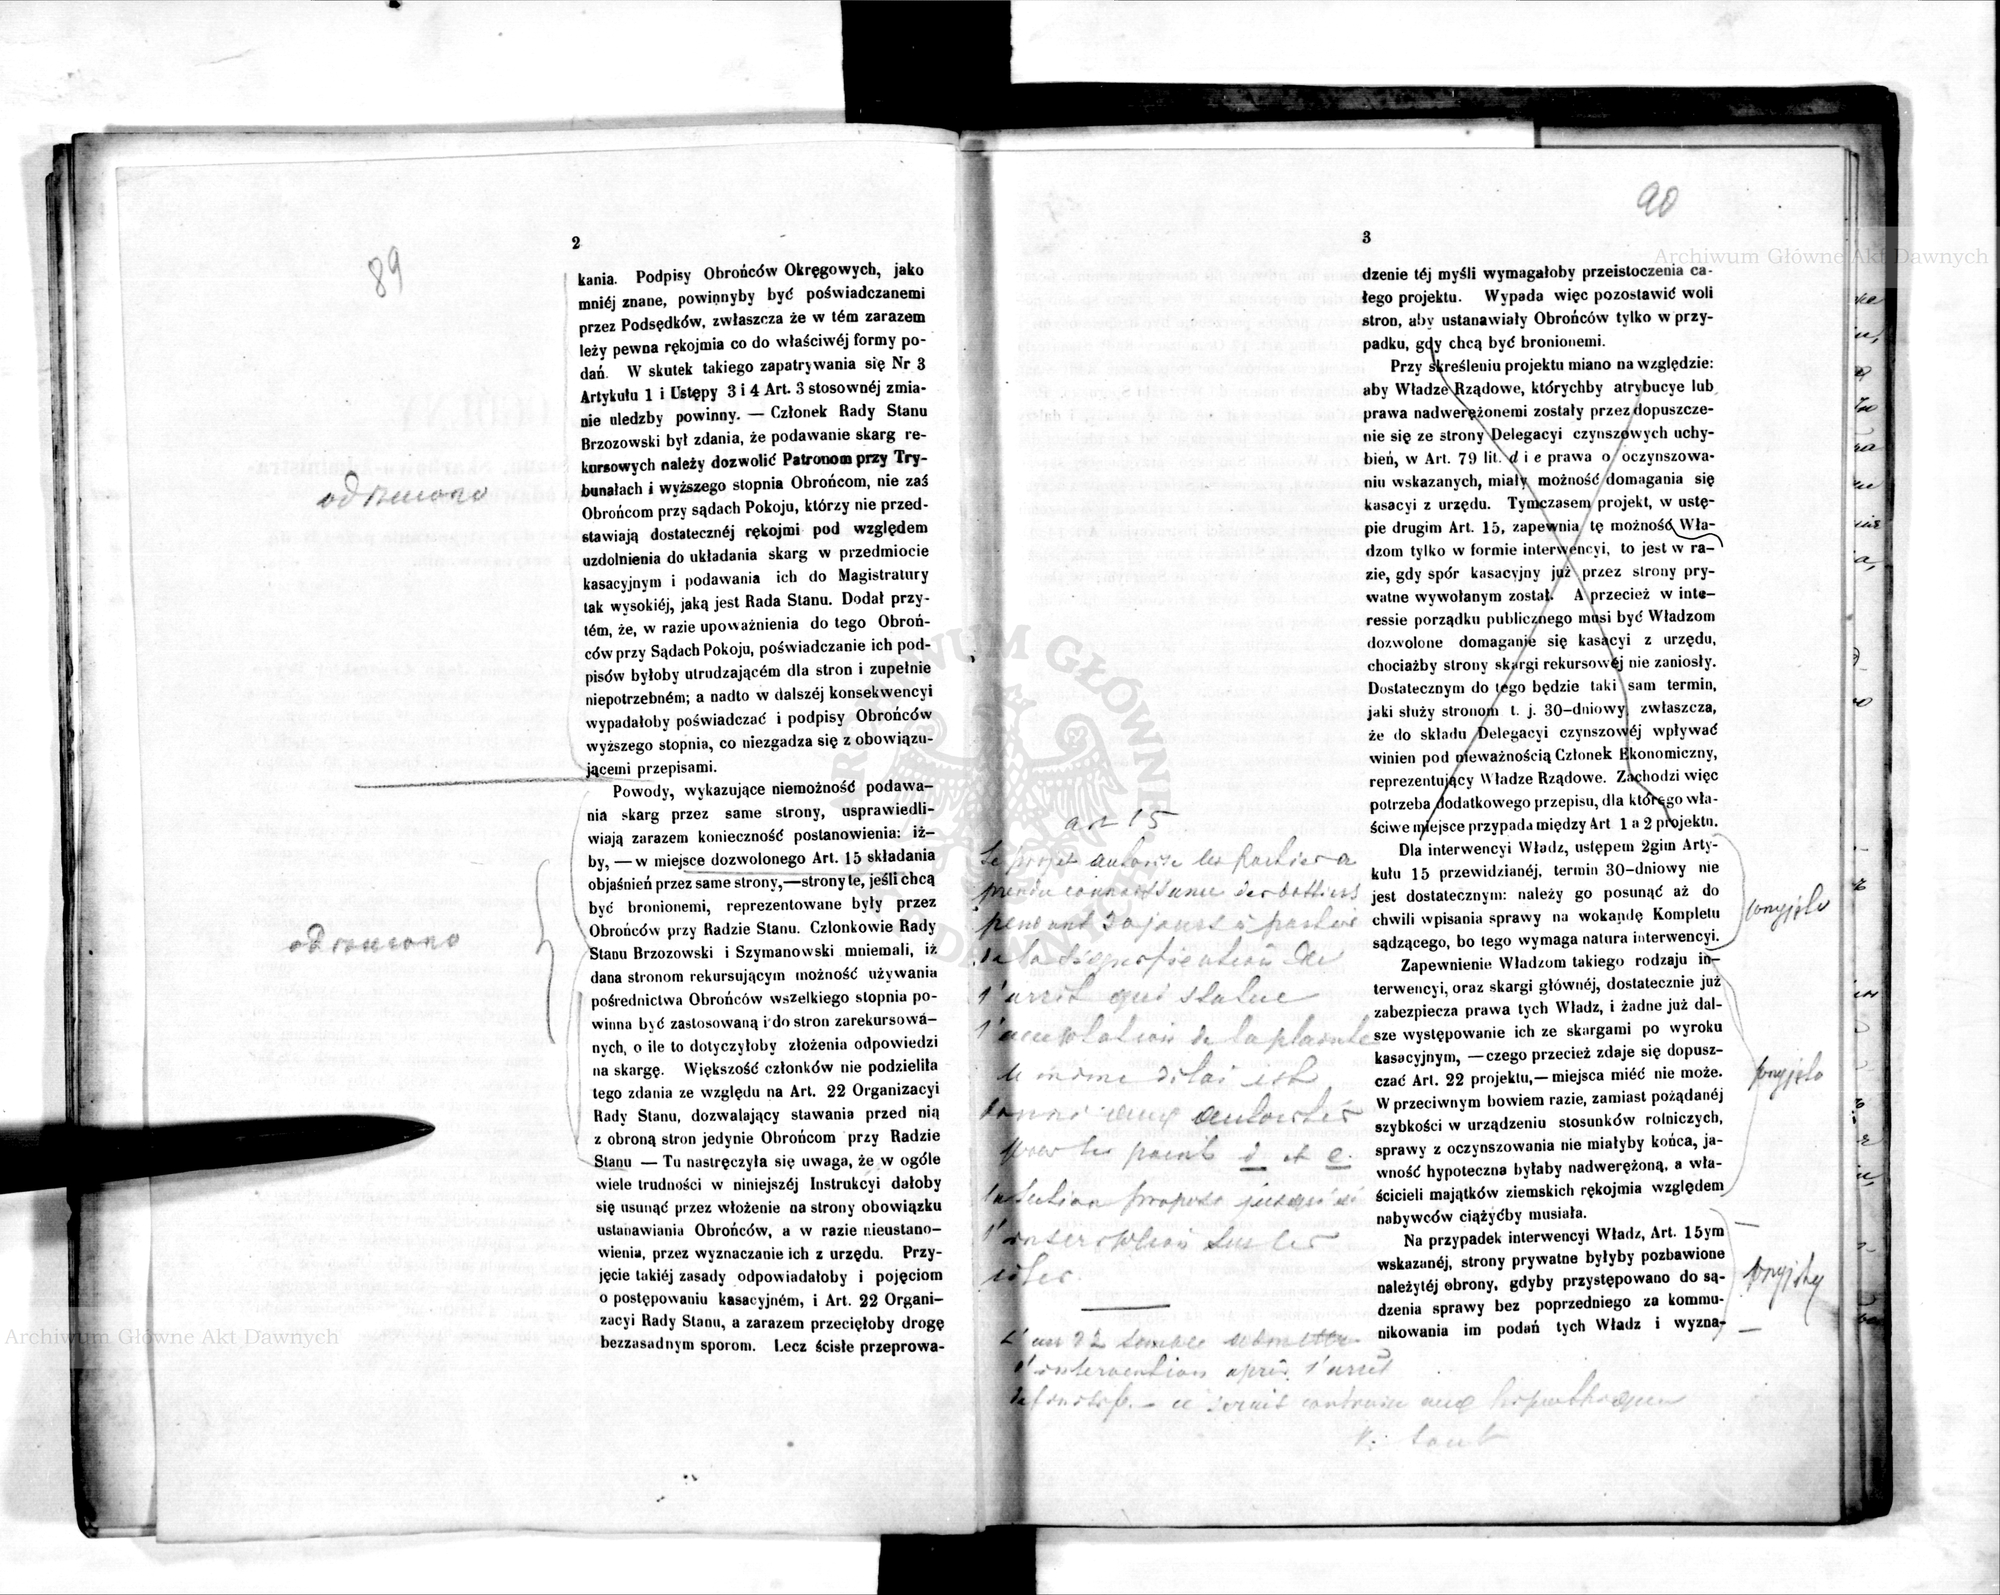 89
2
kania. Podpisy Obrońców Okręgowych, jako
mniéj znane, powinnyby być poświadczanemi
przez Podsędków, zwłaszcza że w tém zarazem
leży pewna rękojmia co do właściwéj formy po-
dań. W skutek takiego zapatrywania się Nr 3
Artykułu 1 i Ustępy 3 i 4 Art. 3 stosownéj zmia-
nie uledzby powinny. — Członek Rady Stanu
Brzozowski był zdania, że podawanie skarg re-
kursowych należy dozwolić Patronom przy Try-
bunałach i wyższego stopnia Obrońcom, nie zaś
Obrońcom przy sądach Pokoju, którzy nie przed-
stawiają dostatecznéj rękojmi pod względem
uzdolnienia do układania skarg w przedmiocie
kasacyjnym i podawania ich do Magistratury
tak wysokiéj, jaką jest Rada Stanu. Dodał przy-
tém, że, w razie upoważnienia do tego Obroń-
ców przy Sądach Pokoju, poświadczanie ich pod-
pisów byłoby utrudzającém dla stron i zupełnie
niepotrzebném; a nadto w dalszéj konsekwencyi
wypadałoby poświadczać i podpisy Obrońców
wyższego stopnia, co niezgadza się z obowiązu-
jącemi przepisami.
Powody, wykazujące niemożność podawa-
nia skarg przez same strony, usprawiedli-
wiają zarazem konieczność postanowienia: iż-
by, — w miejsce dozwolonego Art. 15 składania
objaśnień przez same strony,—strony te, jeśli chcą
być bronionemi, reprezentowane były przez
Obrońców przy Radzie Stanu. Członkowie Rady
Stanu Brzozowski i Szymanowski mniemali, iż
dana stronom rekursującym możność używania
pośrednictwa Obrońców wszelkiego stopnia po-
winna być zastosowaną i do stron zarekursowa-
nych, o ile to dotyczyłoby złożenia odpowiedzi
na skargę. Większość członków nie podzieliła
tego zdania ze względu na Art. 22 Organizacyi
Rady Stanu, dozwalający stawania przed nią
z obroną stron jedynie Obrońcom przy Radzie
Stanu — Tu nastręczyła się uwaga, że w ogóle
wiele trudności w niniejszéj Instrukcyi dałoby
się usunąć przez włożenie na strony obowiązku
ustanawiania Obrońców, a w razie nieustano-
wienia, przez wyznaczanie ich z urzędu. Przy-
jęcie takiéj zasady odpowiadałoby i pojęciom
o postępowaniu kasacyjném, i Art. 22 Organi-
zacyi Rady Stanu, a zarazem przecięłoby drogę
bezzasadnym sporom. Lecz ścisłe przeprowa-
odrzucono
odrzucono
90
3
dzenie téj myśli wymagałoby przeistoczenia ca-
łego projektu. Wypada więc pozostawić woli
stron, aby ustanawiały Obrońców tylko w przy-
padku, gdy chcą być bronionemi.
Przy skreśleniu projektu miano na względzie:
aby Władze Rządowe, którychby atrybucye lub
prawa nadwerężonemi zostały przez dopuszcze-
nie się ze strony Delegacyi czynszowych uchy-
bień, w Art. 79 lit. d i e prawa o oczynszowa-
niu wskazanych, miały możność domagania się
kasacyi z urzędu. Tymczasem projekt, w ustę-
pie drugim Art. 15, zapewnia tę możność Wła-
dzom tylko w formie interwencyi, to jest w ra-
zie, gdy spór kasacyjny już przez strony pry-
watne wywołanym został. A przecież w inte-
ressie porządku publicznego musi być Władzom
dozwolone domaganie się kasacyi z urzędu,
chociażby strony skargi rekursowéj nie zaniosły.
Dostatecznym do tego będzie taki sam termin,
jaki służy stronom t. j. 30-dniowy, zwłaszcza,
że do składu Delegacyi czynszowéj wpływać
winien pod nieważnością Członek Ekonomiczny,
reprezentujący Władze Rządowe. Zachodzi więc
potrzeba dodatkowego przepisu, dla którego wła-
ściwe miejsce przypada między Art 1 a 2 projektu.
Dla interwencyi Władz, ustępem 2gim Arty-
kułu 15 przewidzianéj, termin 30-dniowy nie
jest dostatecznym: należy go posunąć aż do
chwili wpisania sprawy na wokandę Kompletu
sądzącego, bo tego wymaga natura interwencyi.
Zapewnienie Władzom takiego rodzaju in-
terwencyi, oraz skargi głównéj, dostatecznie już
zabezpiecza prawa tych Władz, i żadne już dal-
sze występowanie ich ze skargami po wyroku
kasacyjnym, —czego przecież zdaje się dopusz-
czać Art. 22 projektu,— miejsca miéć nie może.
W przeciwnym bowiem razie, zamiast pożądanéj
szybkości w urządzeniu stosunków rolniczych,
sprawy z oczynszowania nie miałyby końca, ja-
wność hypoteczna byłaby nadwerężoną, a wła-
ścicieli majątków ziemskich rękojmia względem
nabywców ciążyćby musiała.
Na przypadek interwencyi Władz, Art. 15ym
wskazanéj, strony prywatne byłyby pozbawione
należytéj obrony, gdyby przystępowano do są-
dzenia sprawy bez poprzedniego za kommu-
nikowania im podań tych Władz i wyzna-
art 15
Le projet autorise les parties a
prendre connaissance des dossiers
pendant 30 jours à partir
de la signification de
l'arrêt qui statue
l'acceptation de la plainte
le même délai est
donné aux autorités
pour les points d et e.
propose jusqu'à
l'inscription sur les
rôles.
L'art 22 semble admettre
l'intervention après l'arrêt
ce serait contraire aux
Archiwum Główne Akt Dawnych
Archiwum Główne Akt Dawnych
ARCHIWUM GŁÓWNE AKT DAWNYCH